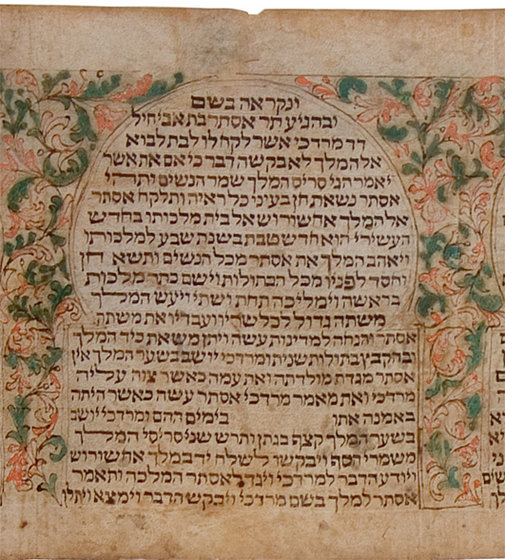 ונקראה בשם
ובהגיע תר אסתר בת אביחיל
דד מרדכי אשר לקח לו לבת לבוא
אל המלך לא בקשה דבר כי אם את אשר
יאמר הגי סריס המלך שמר הנשים ותהי
אסתר נשאת חן בעיני כל ראיה ותלקח אסתר
אל המלך אחשורוש אל בית מלכותו בחדש
העשירי הוא חדש טבת בשנת שבע למלכותו
ויאהב המלך את אסתר מכל הנשים ותשא חן
וחסד לפניו מכל הבתולות וישם כתר מלכות
בראשה וימליכה תחת ושתי ויעש המלך
משתה גדול לכל שריו ועבדיו את משתה
אסתר והנחה למדינות עשה ויתן משאת כיד המלך
ובהקבץ בתולות שנית ומרדכי יושב בשער המלך אין
אסתר מגדת מולדתה ואת עמה כאשר צוה עליה
מרדכי ואת מאמר מרדכי אסתר עשה כאשר היתה
באמנה אתו בימים ההם ומרדכי יושב
בשער המלך קצף בגתן ותרש שני סריסי המלך
משמרי הסף ויבקשו לשלח יד במלך אחשורוש
ויודע הדבר למרדכי ויגד לאסתר המלכה ותאמר
אסתר למלך בשם מרדכי ויבקש הדבר וימצא ויתלו